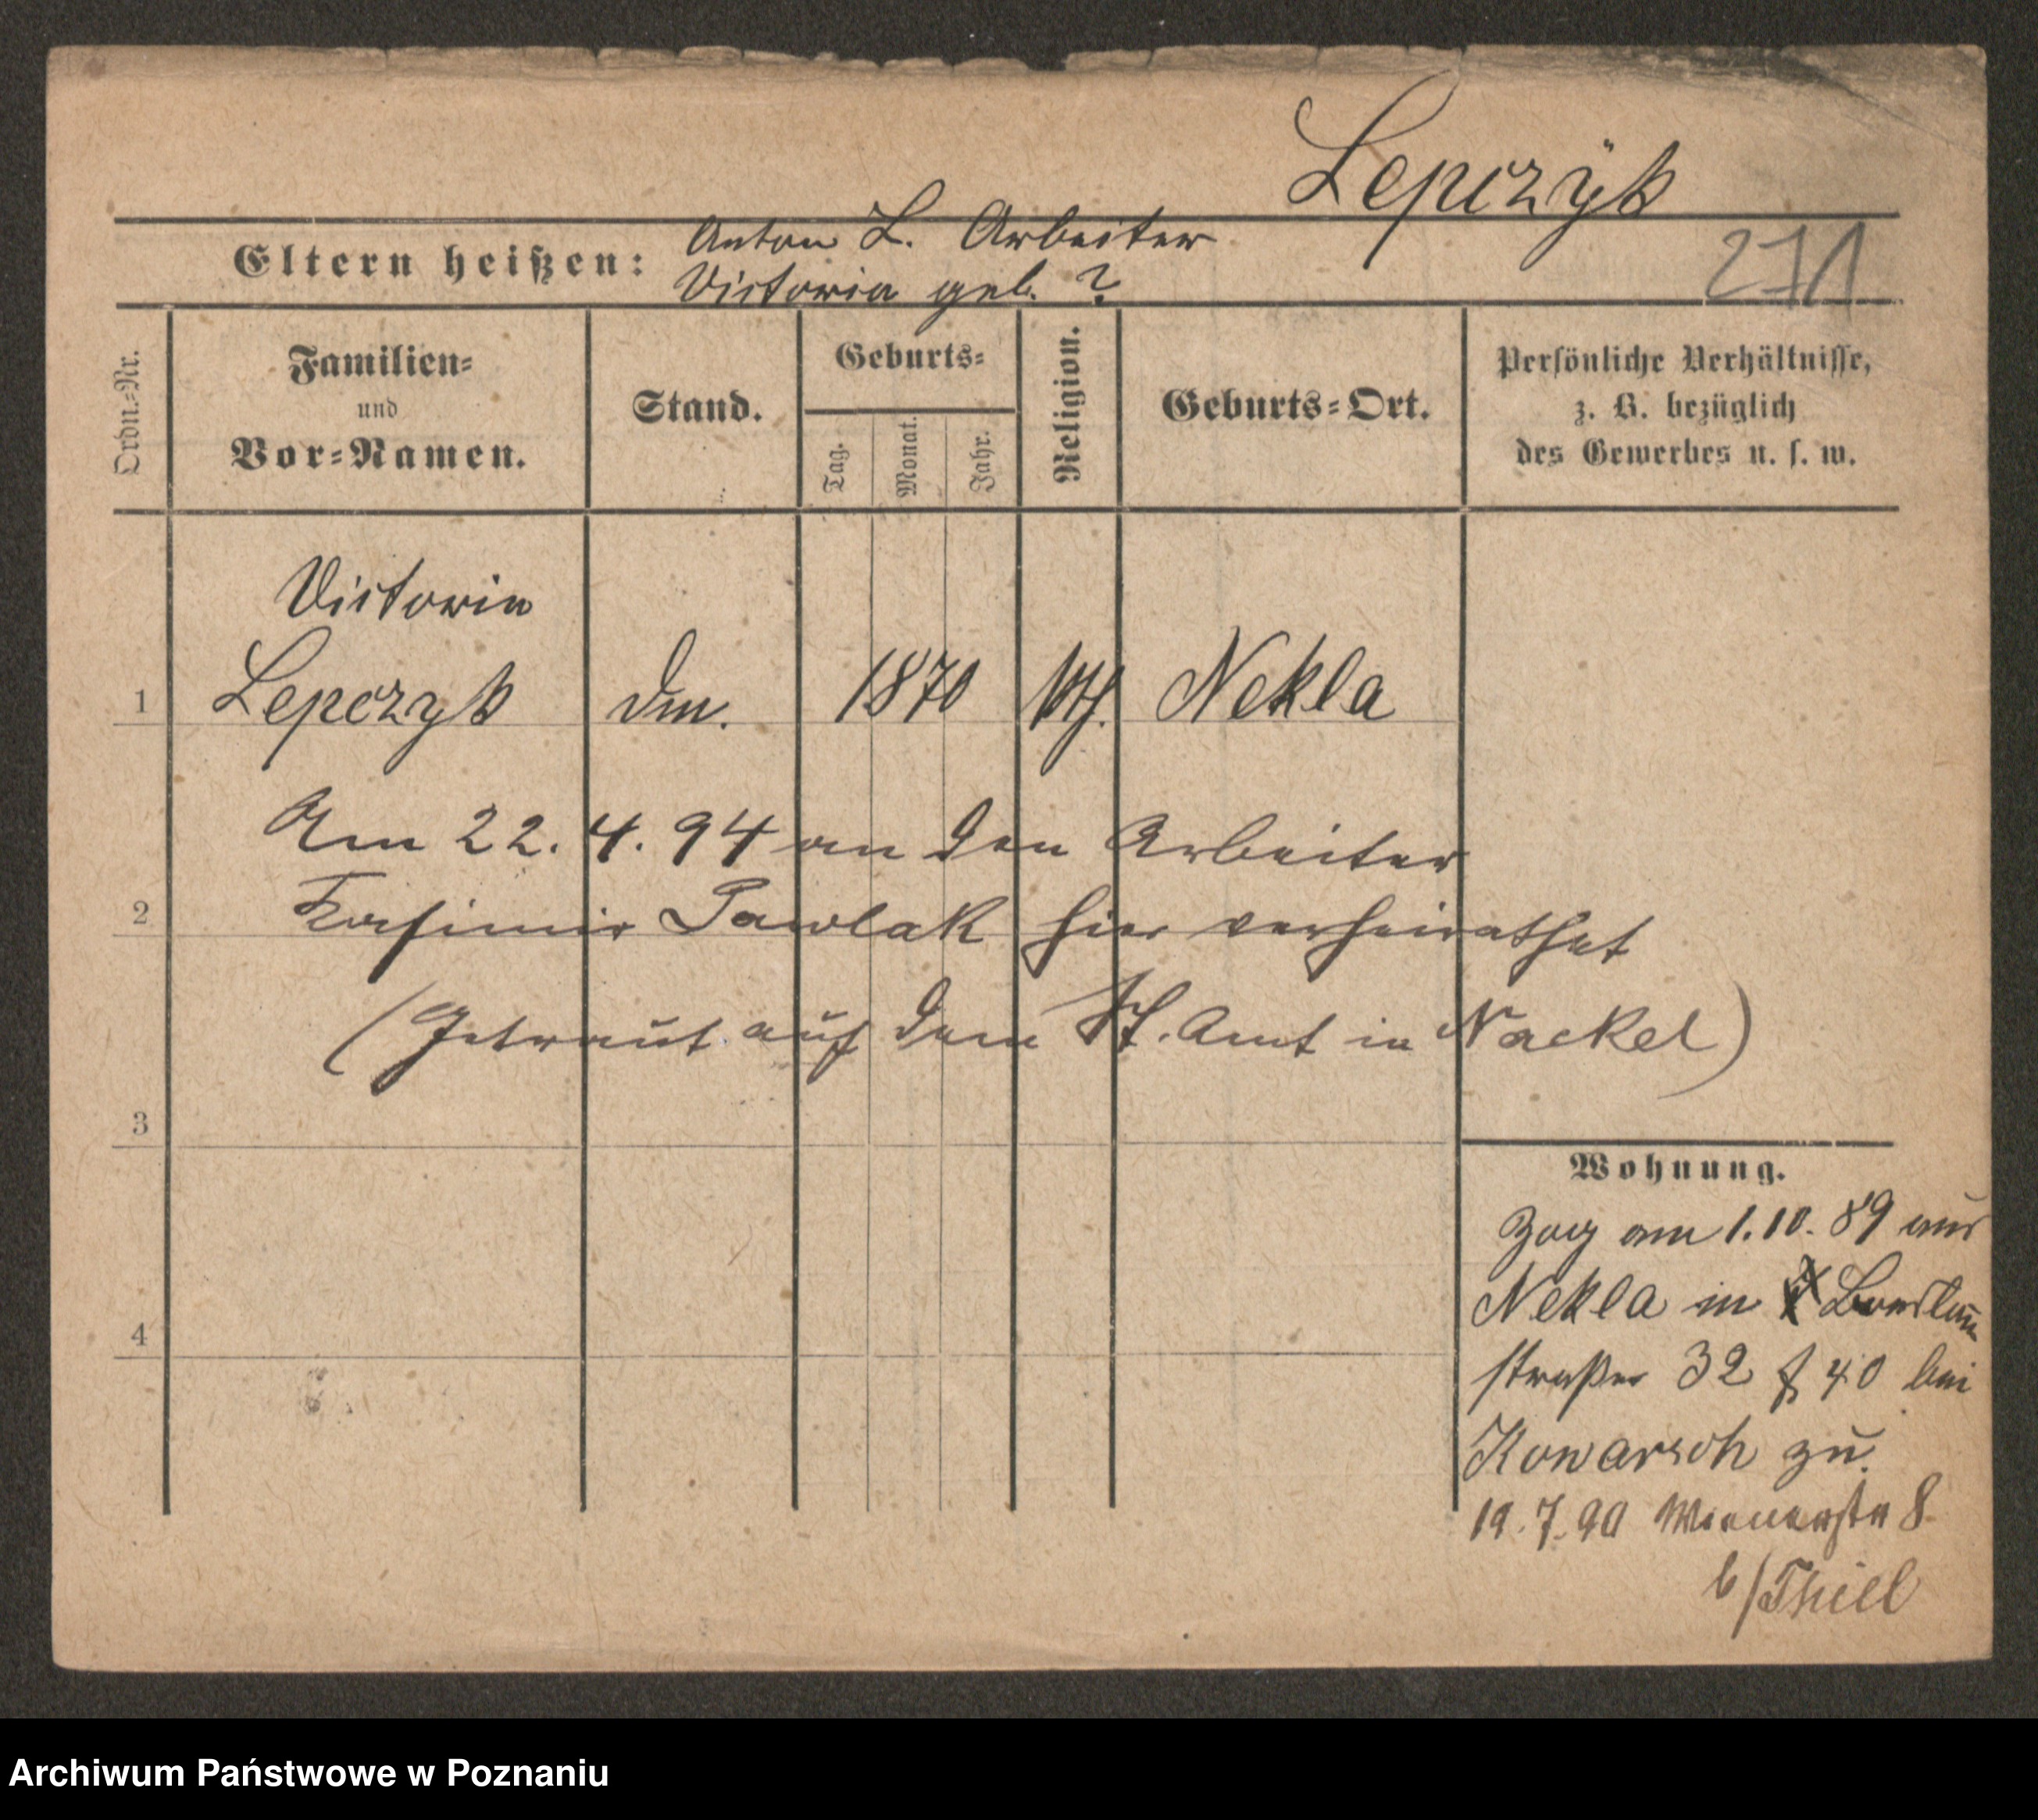 Lepczÿk
Eltern heißen: Anton L. Arbeiter
Victoria geb. ?
271
Ordn.-Nr.
Familien-
und
Vor-Namen.
Stand.
Geburts-
Tag.
Monat.
Jahr.
Religion.
Geburts-Ort.
Persönliche Verhältnisse,
z. B. bezüglich
des Gewerbes u. s. w.
Victoria
1 Lepczyk 1870 kth. Nekla
Am 22. 4. 94 an den Arbeiter
2 Kasimir Pawlak hier verheirathet
(Getraut auf dem St. Amt in Nackel)
3
4
Wohnung.
Zog am 1.10.89 aus
Nekla in
straße 32 40 bei
zu
19.7.90 8
b/Thiel
Archiwum Państwowe w Poznaniu